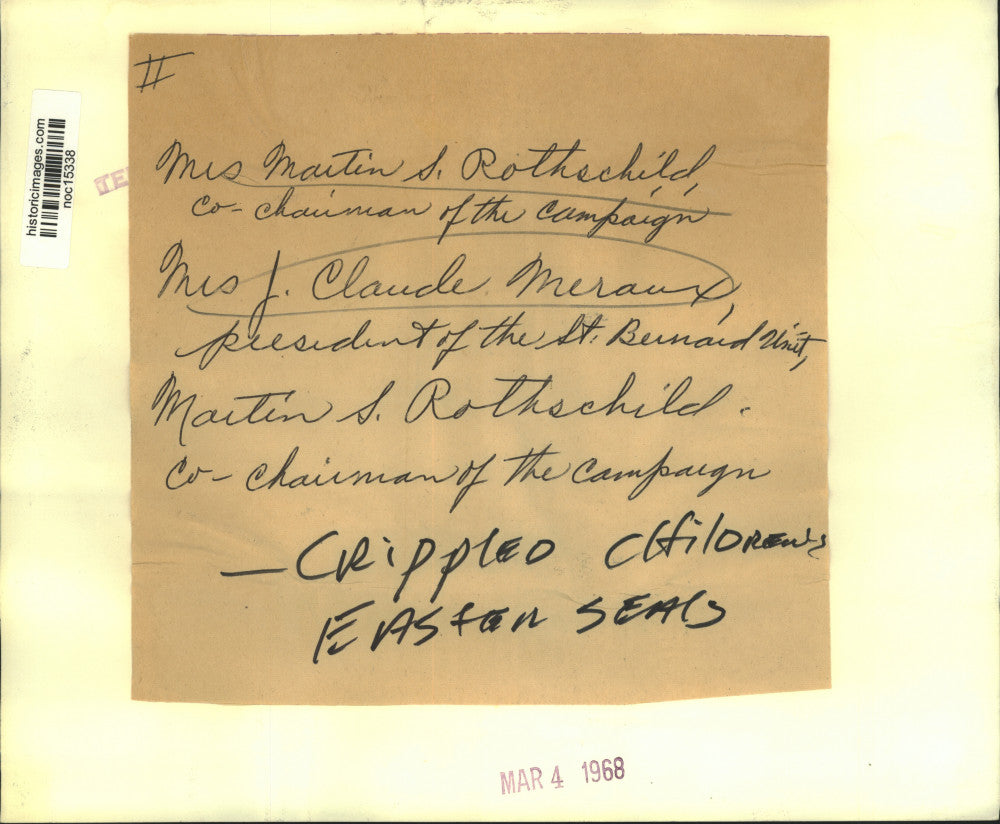 II
historicimages.com
noc15338
TE
Mrs Martin S. Rothschild,
co-chairman of the campaign
Mrs J. Claude Meraux,
president of the St. Bernard Unit,
Martin S. Rothschild.
co-chairman of the campaign
— CRippLED CHilDREN'S
EASTER SEALS
MAR 4 1968